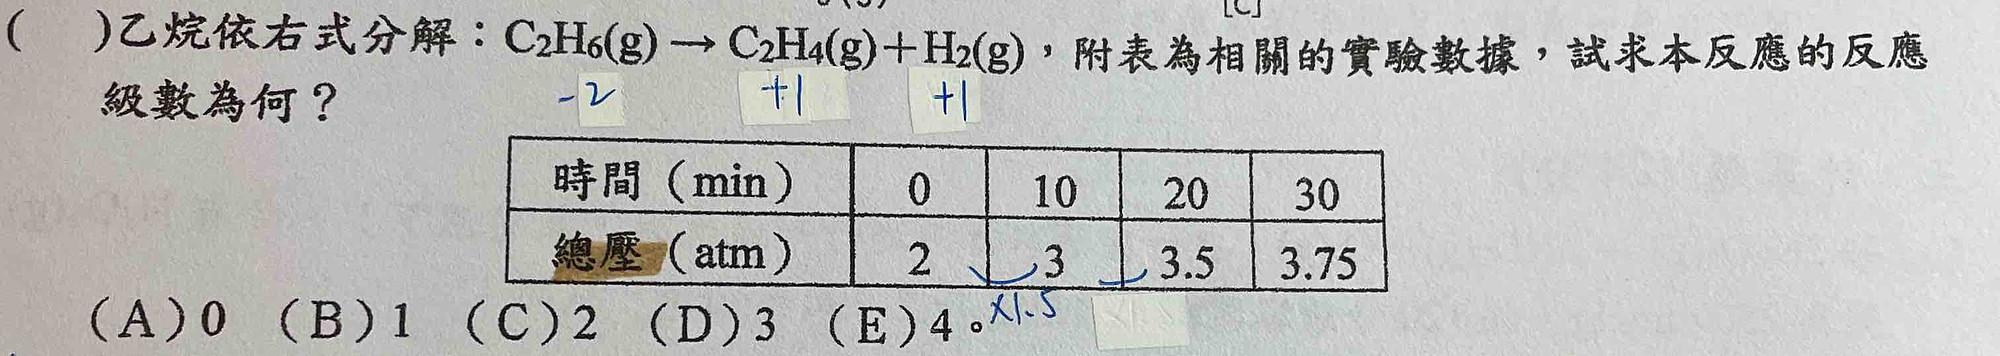 [C]
( )乙烷依右式分解：C₂H₆(g) → C₂H₄(g)+H₂(g)，附表為相關的實驗數據，試求本反應的反應
級數為何？
-2 +1 +1
時間（min） 0 10 20 30
總壓（atm） 2 3 3.5 3.75
×1.5
（A）0 （B）1 （C）2 （D）3 （E）4。